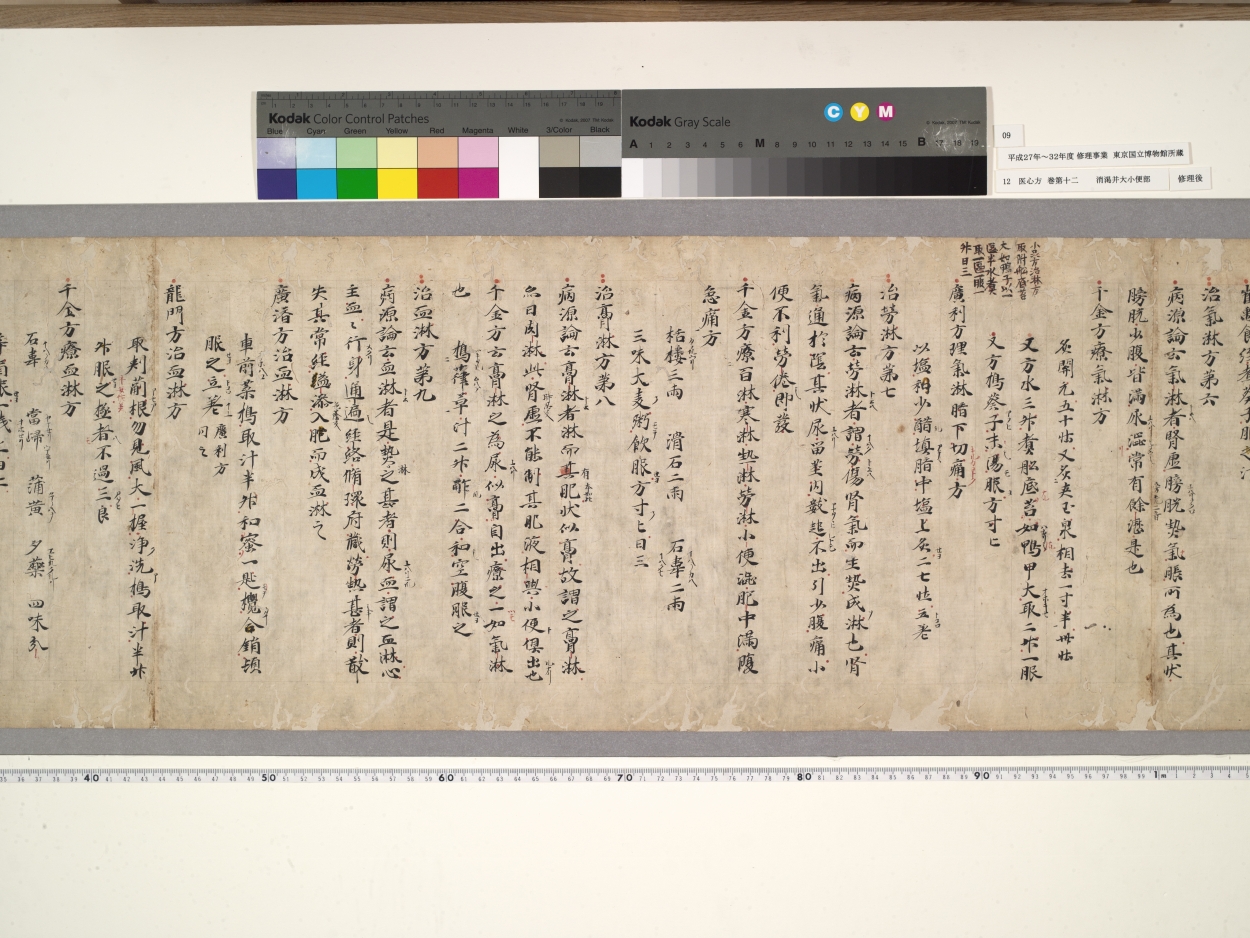 Kodak Color Control Patches
Blue Cyan Green Yellow Red Magenta White 3/Color Black
Kodak Gray Scale
C Y M
A 1 2 3 4 5 6 M 8 9 10 11 12 13 14 15 B 17 18 19
09
平成27年～32年度 修理事業 東京国立博物館所蔵
12 医心方 巻第十二 消渇并大小便部
修理後
治氣淋方第六
病源論云氣淋者腎虛膀胱熱氣脹所為也其狀
膀胱小腹皆滿尿澀常有餘瀝是也
千金方療氣淋方
灸關元五十壯又灸夾玉泉相去一寸半卅壯
又方水三升煮舩底苔如鴨甲大取二升一服
又方搗葵子末湯服方寸匕
小品方治淋方
取附舩底苔
大如鴨子以一
區半水煮
取一區頓一
升日三
廣利方理氣淋臍下切痛方
以塩和少醋填臍中塩上灸二七壯立差
治勞淋方第七
病源論云勞淋者謂勞傷腎氣而生熱成淋也腎
氣通於陰其狀尿留莖內數起不出引少腹痛小
便不利勞倦即發
千金方療百淋寒淋熱淋勞淋小便澀胞中滿腹
急痛方
栝樓三兩 滑石二兩 石韋二兩
三味大麦粥飲服方寸匕日三
治膏淋方第八
病源論云膏淋者淋而其肥狀似膏故謂之膏淋
亦曰肉淋此腎虛不能制其肥液相與小便俱出也
千金方云膏淋之為尿似膏自出療之一如氣淋
也 搗葎草汁二升酢二合和空腹服之
治血淋方第九
病源論云血淋者是熱之甚者則尿血謂之血淋心
主血々行身通遍經絡循環府藏勞熱甚者則散
失其常經溢滲入胞而成血淋之
廣濟方治血淋方
車前菜搗取汁半升和蜜一匙攪合銷頓
服之立差 廣利方同之
龍門方治血淋方
取剌薊根勿見風大一握淨洗搗取汁半升
升服之極者不過三良
千金方療血淋方
石韋 當歸 蒲黃 夕藥 四味分
40 50 60 70 80 90 1m